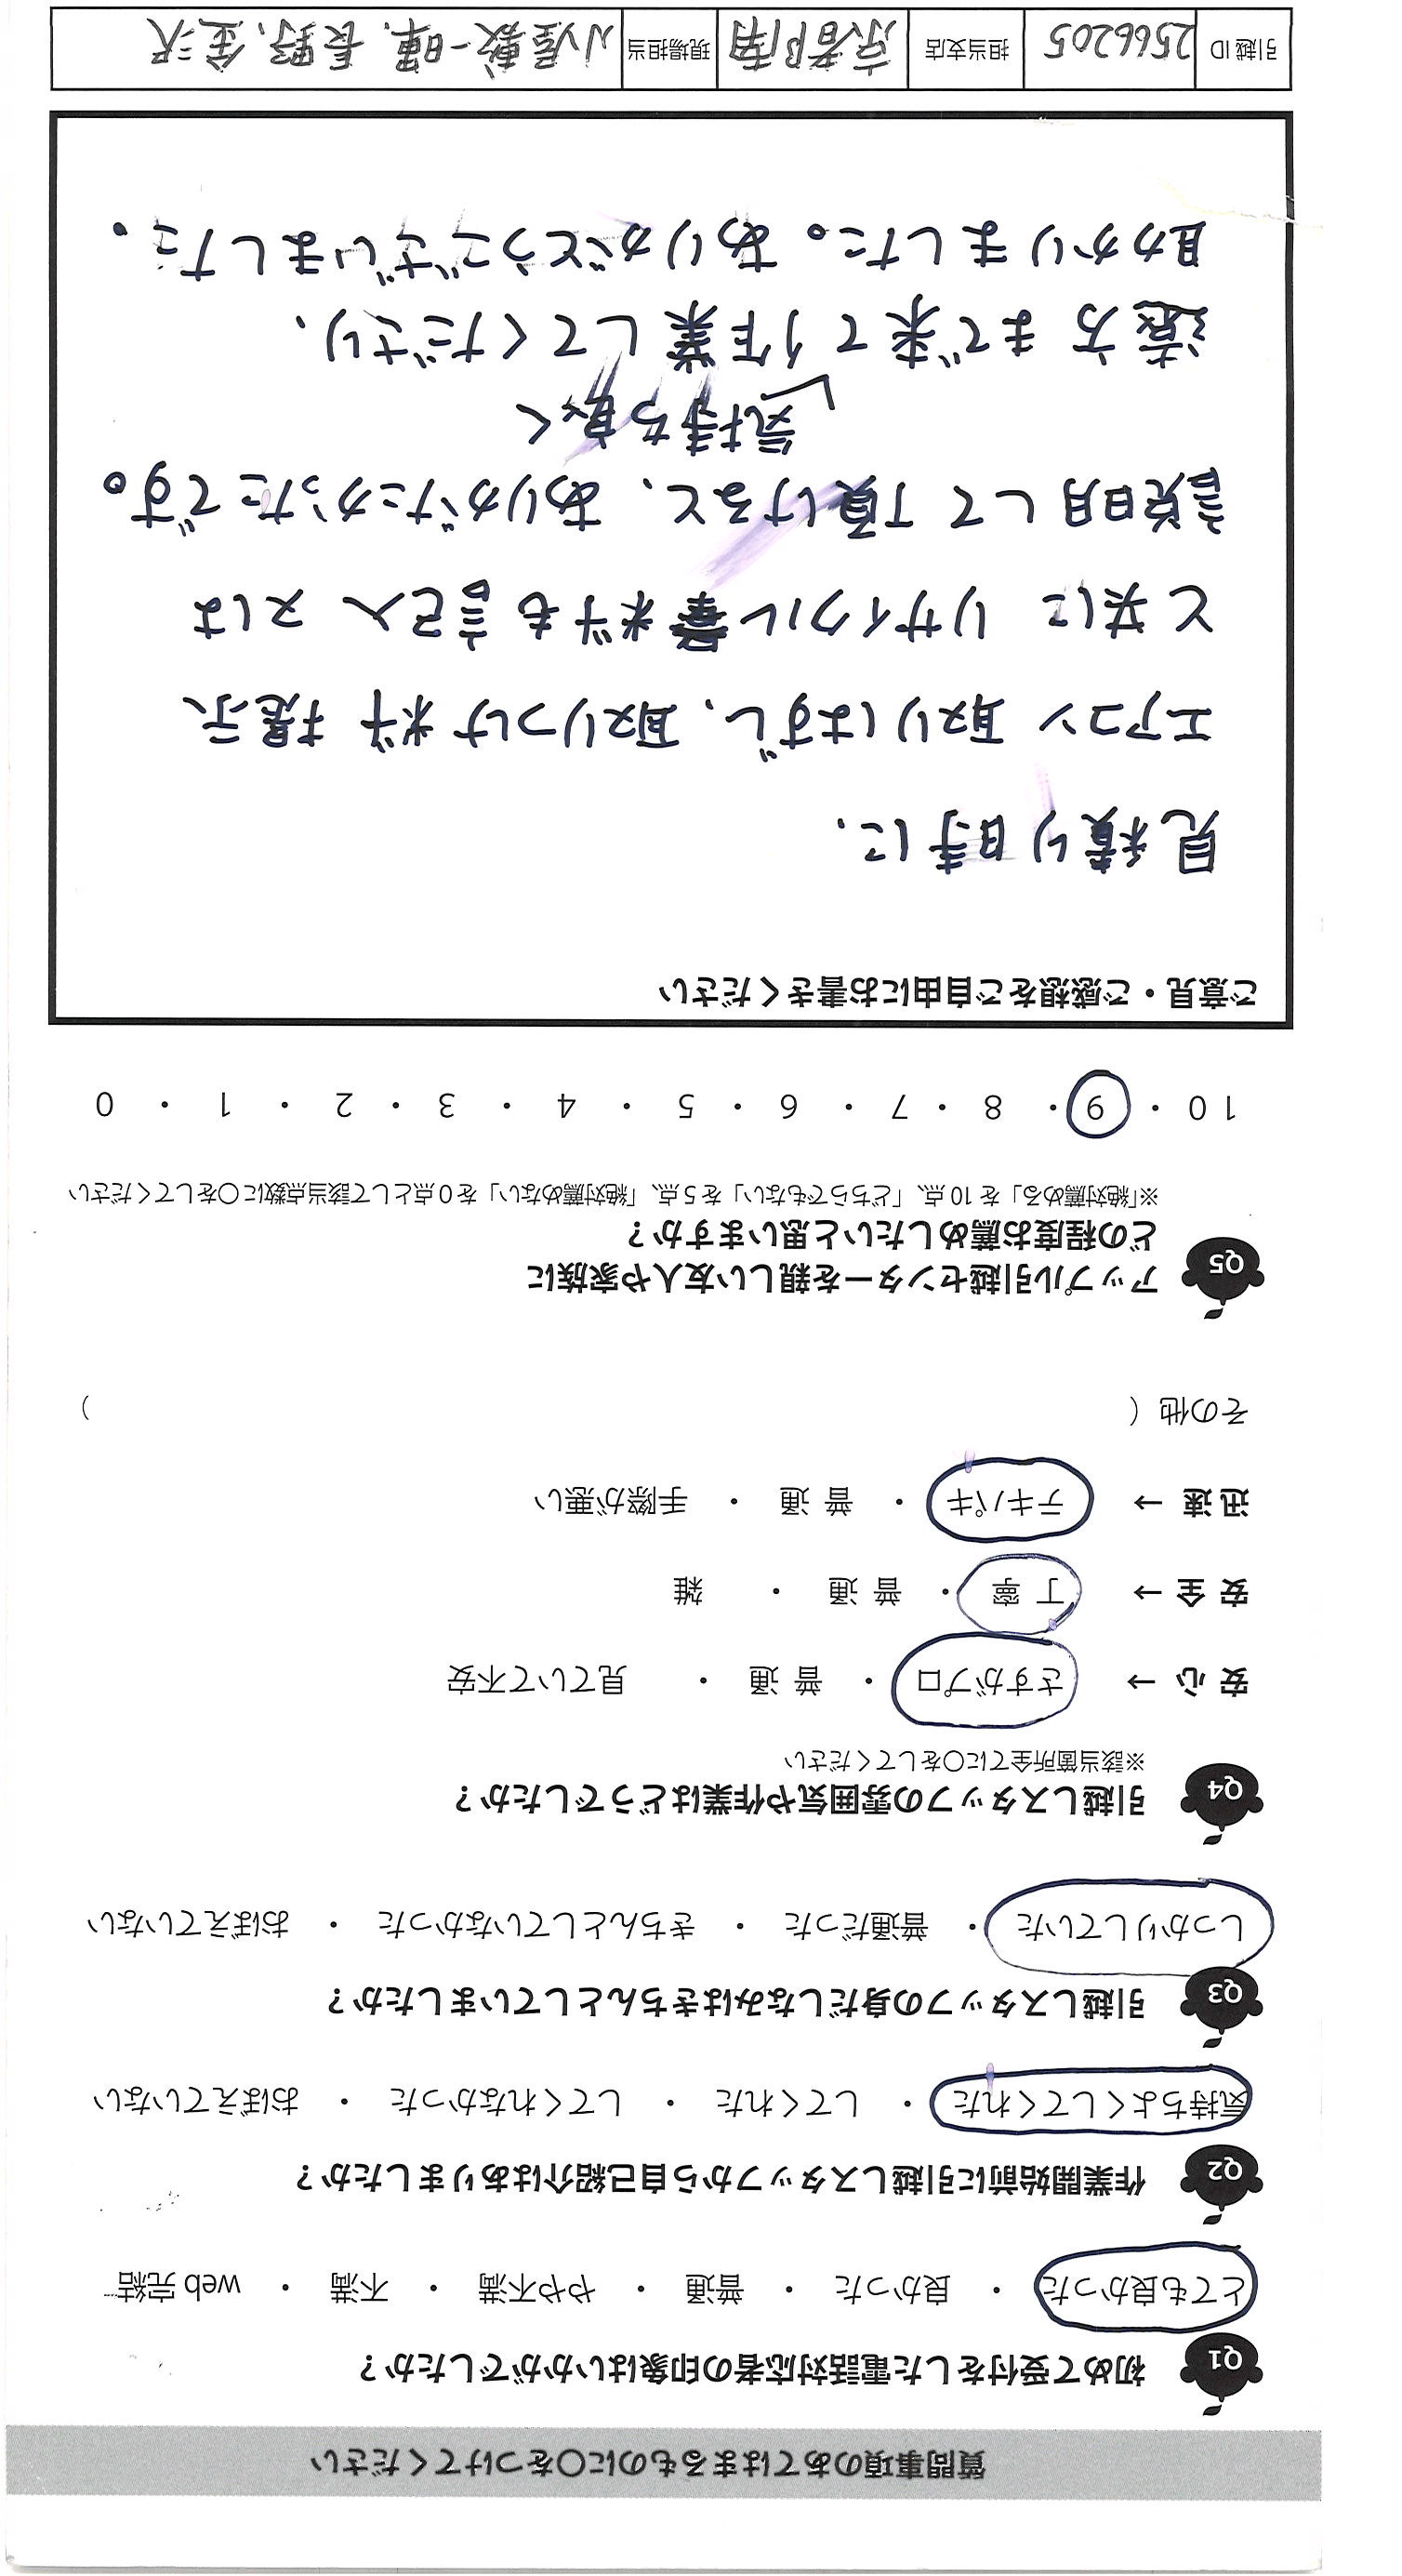 質問事項のあてはまるものに○をつけてください
Q1 初めて受付をした電話対応者の印象はいかがでしたか？
とても良かった ・ 良かった ・ 普通 ・ やや不満 ・ 不満 ・ web 完結
Q2 作業開始前に引越しスタッフから自己紹介はありましたか？
気持ちよくしてくれた ・ してくれた ・ してくれなかった ・ おぼえていない
Q3 引越しスタッフの身だしなみはきちんとしていましたか？
しっかりしていた ・ 普通だった ・ きちんとしていなかった ・ おぼえていない
Q4 引越しスタッフの雰囲気や作業はどうでしたか？
※該当箇所全てに○をしてください
安 心 → さすがプロ ・ 普 通 ・ 見ていて不安
安 全 → 丁 寧 ・ 普 通 ・ 雑
迅 速 → テキパキ ・ 普 通 ・ 手際が悪い
その他（ ）
Q5 アップル引越センターを親しい友人や家族に
どの程度お薦めしたいと思いますか？
※「絶対薦める」を 10 点、「どちらでもない」を 5 点、「絶対薦めない」を 0 点として該当点数に○をしてください
10 ・ 9 ・ 8 ・ 7 ・ 6 ・ 5 ・ 4 ・ 3 ・ 2 ・ 1 ・ 0
ご意見・ご感想をご自由にお書きください
見積り時に、
エアコン 取りはずし、取りつけ料 提示
と共に リサイクル 料も記入 又は
説明して頂けると、ありがたかったです。
気持ち良く
遠方まで来て作業してくださり、
助かりました。ありがとうございました。
引越 ID 2566205 担当支店 京都南 現場担当 小屋敷一暉、長野、金沢